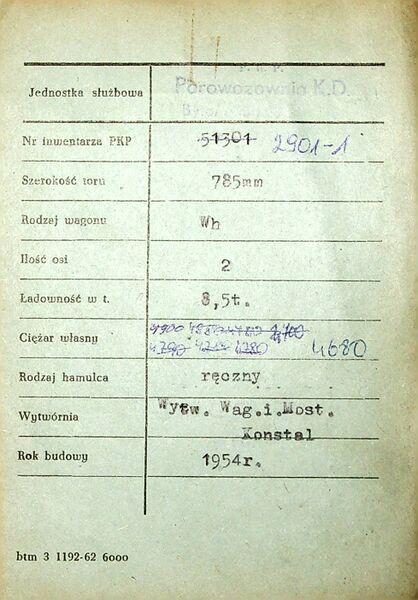 P. K. P.
Jednostka służbowa Parowozownia K.D.
Nr inwentarza PKP 51301 2901-1
Szerokość toru 785mm
Rodzaj wagonu Wh
Ilość osi 2
Ładowność w t. 8,5t.
Ciężar własny 4680
Rodzaj hamulca ręczny
Wytwórnia Wytw. Wag.i.Most.
Konstal
Rok budowy 1954r.
btm 3 1192-62 6000